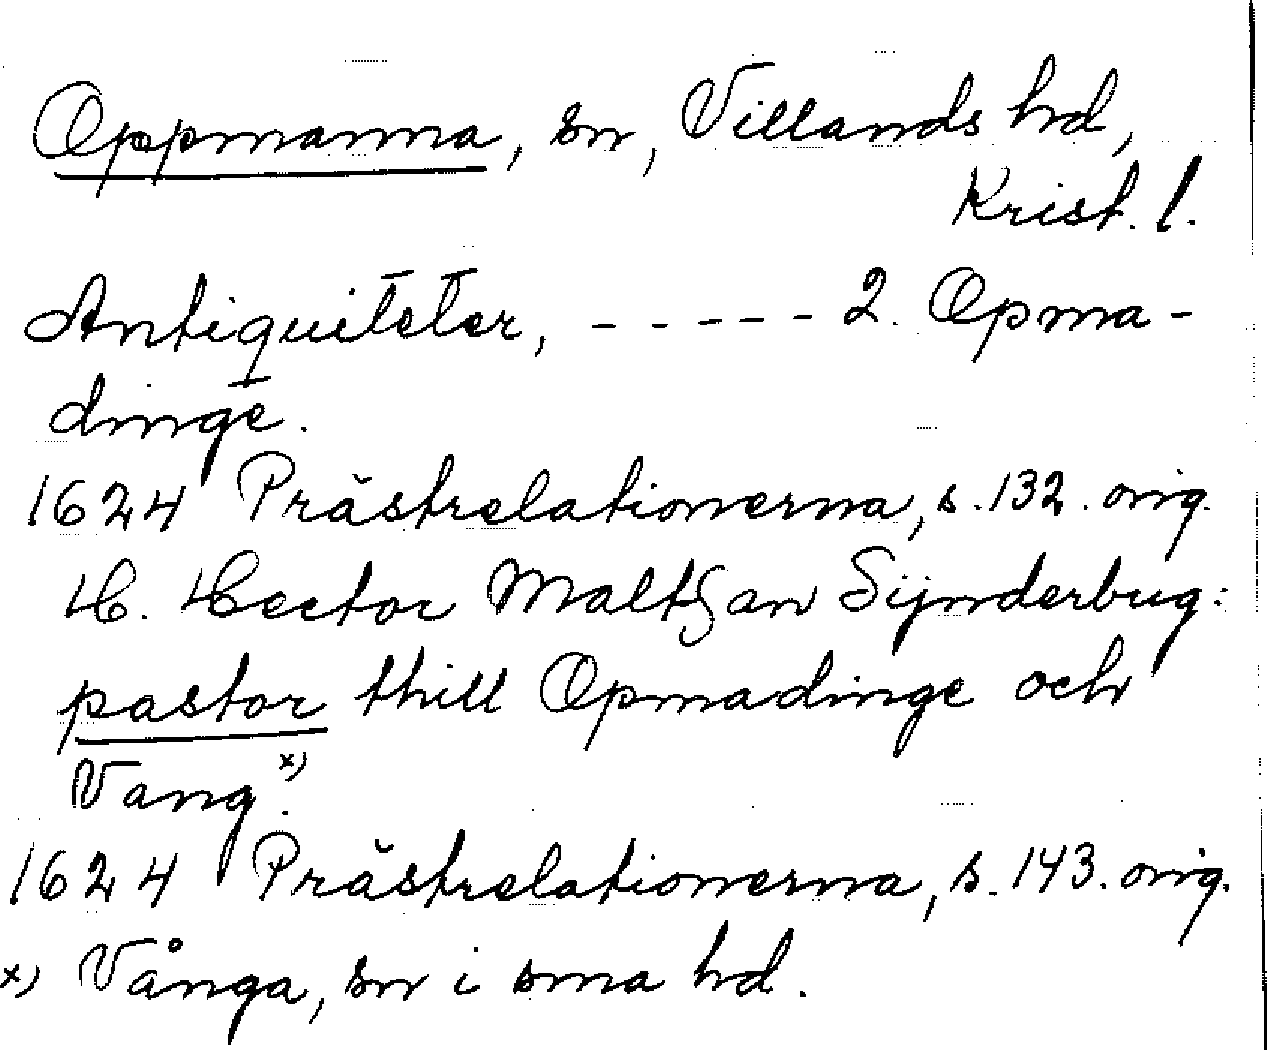 Oppmanna, sn, Villands hd,
Krist. l.
Antiquiteter, ----- 2. Opma-
dinge.
1624 Prästrelationerna, s. 132. orig.
H. Hector Maltzan Sijnderbug:
pastor thill Opmadinge och
Vang x).
1624 Prästrelationerna, s. 143. orig.
x) Vånga, sn i sma hd.